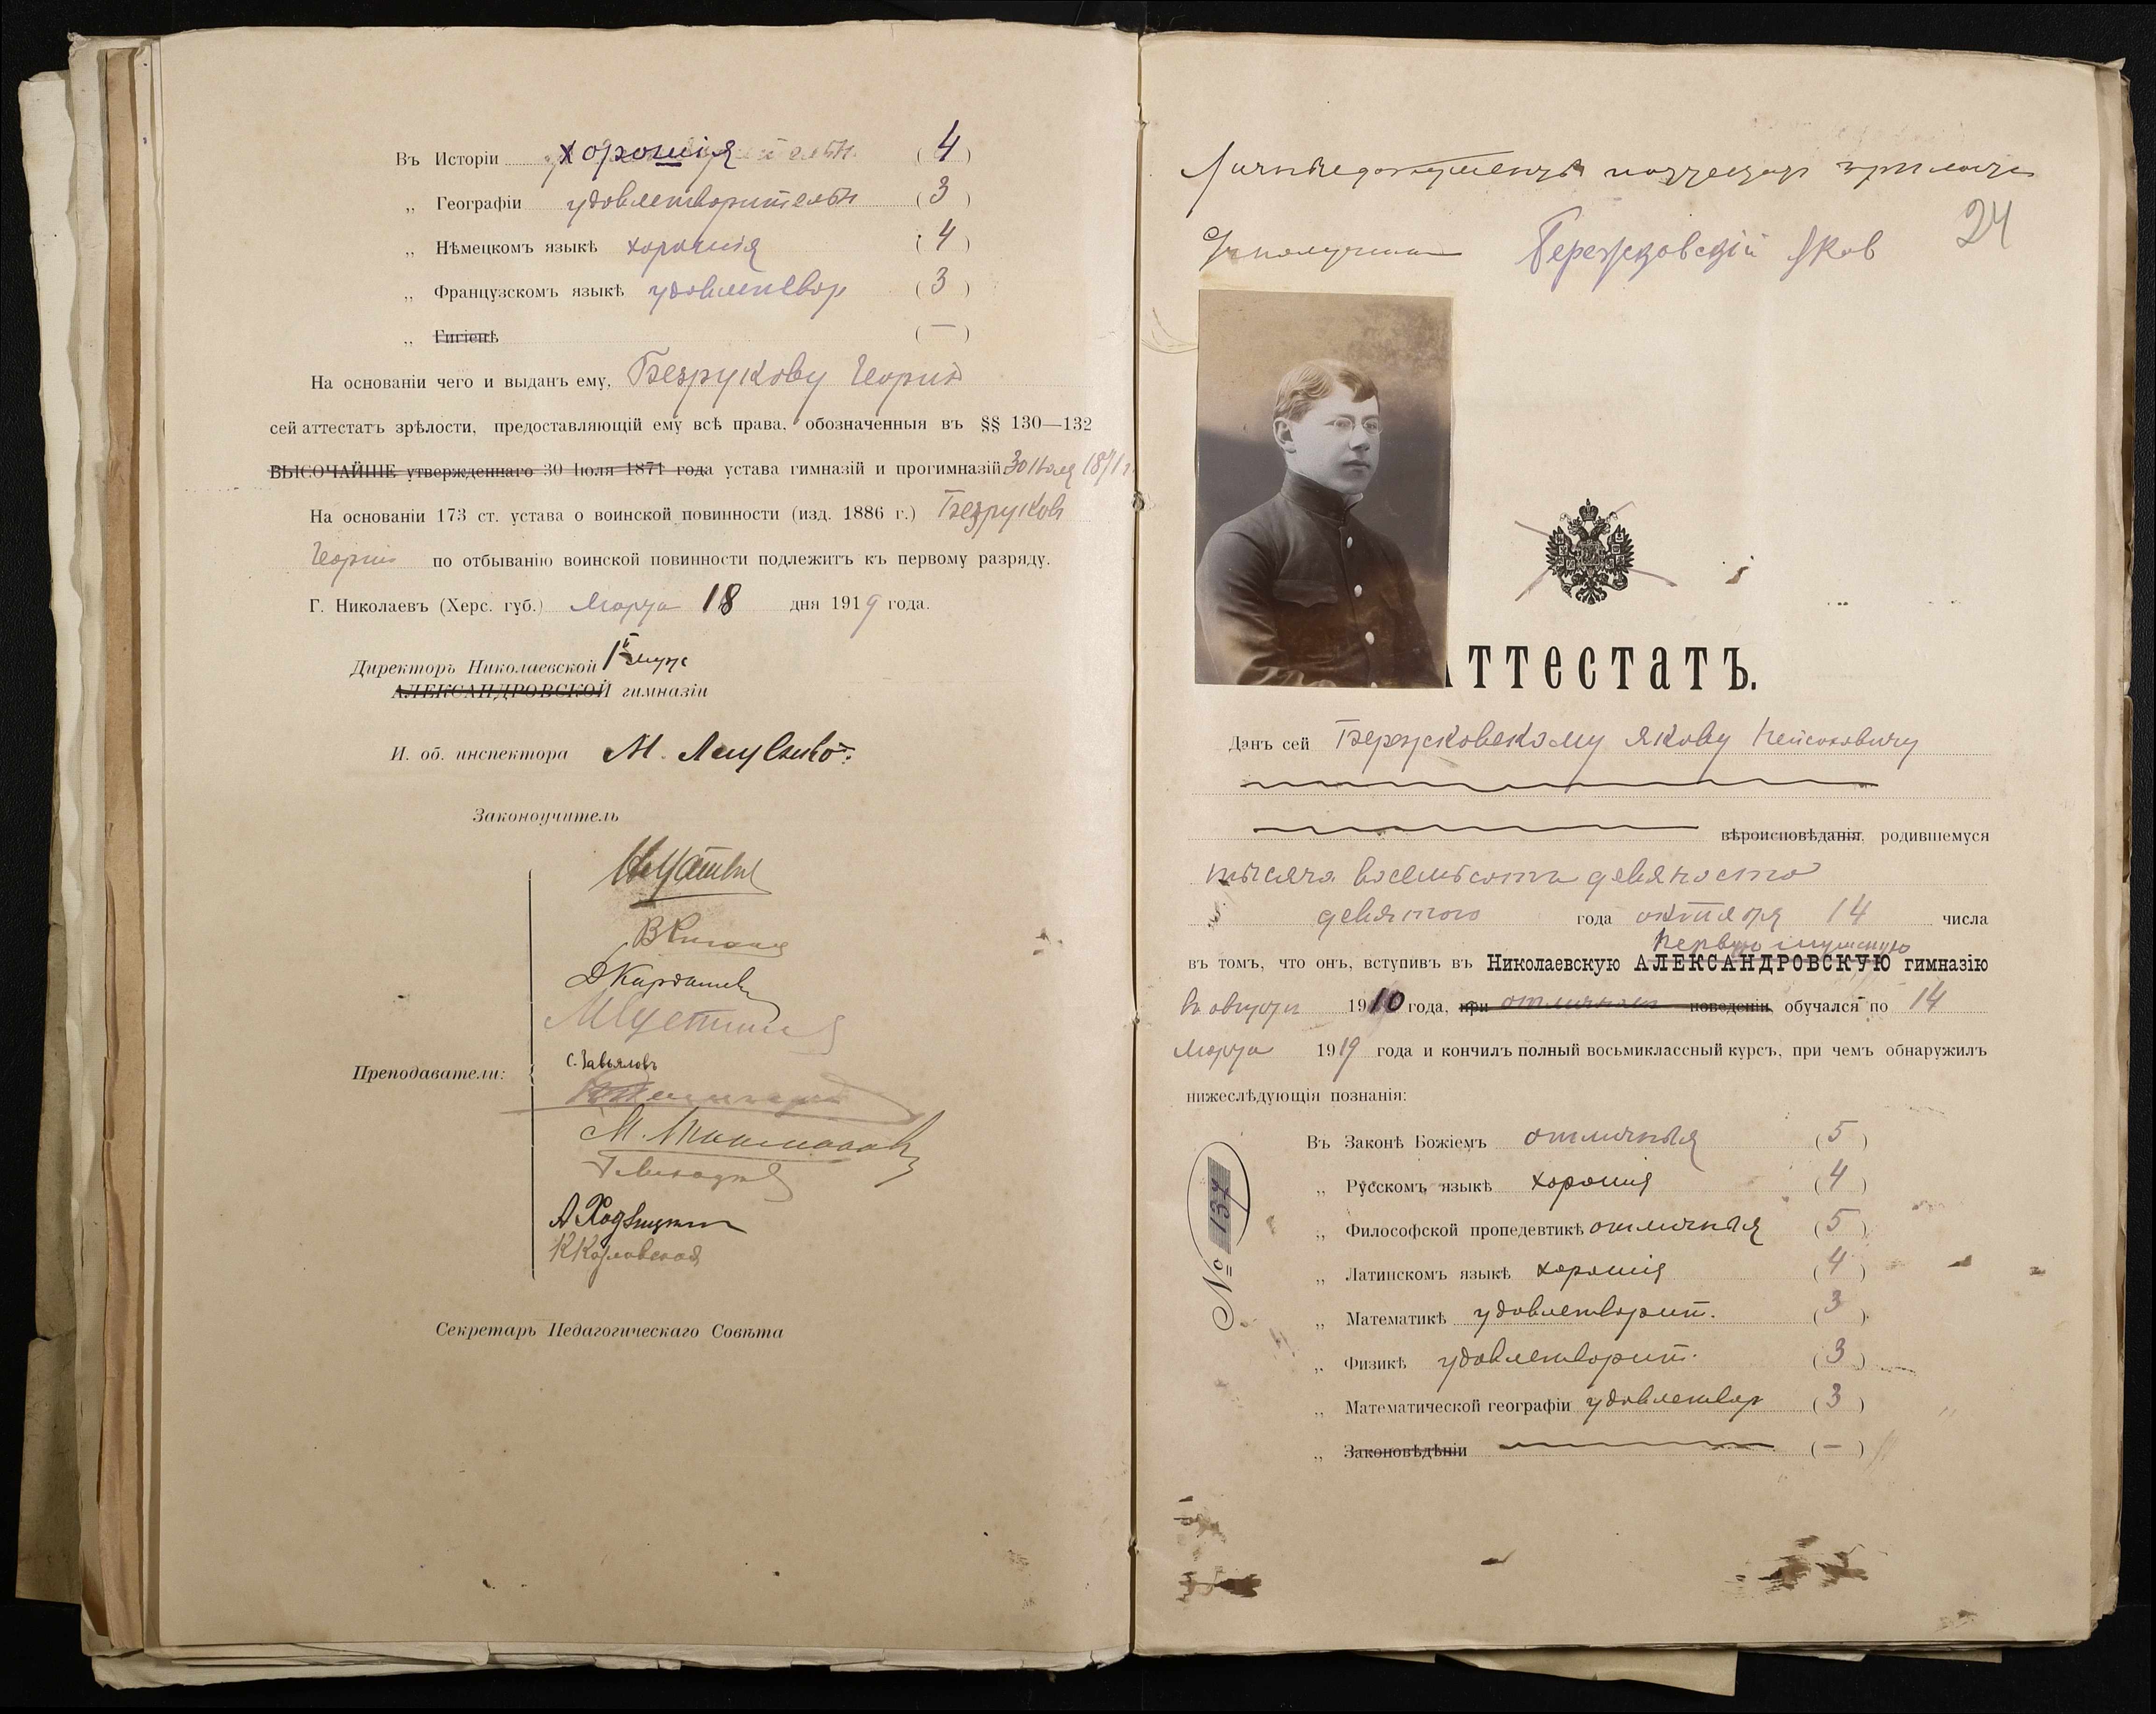 Въ Исторіи хорошія (4)
„ Географіи удовлетворительн (3)
„ Нѣмецкомъ языкѣ хорошія (4)
„ Французскомъ языкѣ удовлетвор (3)
„ Гигіенѣ (—)
На основаніи чего и выданъ ему, Безрукову Георгію
сей аттестатъ зрѣлости, предоставляющій ему всѣ права, обозначенныя въ §§ 130—132
ВЫСОЧАЙШЕ утвержденнаго 30 Іюля 1871 года устава гимназій и прогимназій 30 Іюля 1871 г.
На основаніи 173 ст. устава о воинской повинности (изд. 1886 г.) Безруков
Георгій по отбыванію воинской повинности подлежитъ къ первому разряду.
Г. Николаевъ (Херс. губ.) Марта 18 дня 1919 года.
Директоръ Николаевской 1й
АЛЕКСАНДРОВСКОЙ гимназіи
И. об. инспектора М.
Законоучитель
Д Кардашев
С. Завьяловъ
Преподаватели:
К Карловская
Секретарь Педагогическаго Совѣта
Личные документы
получил Бережковскій Яков
24
Аттестатъ.
Данъ сей Бережковскому Якову Нейсоновичу
вѣроисповѣданія, родившемуся
тысяча восемьсотъ девяносто
девятого года октября 14 числа
Первую мужскую
въ томъ, что онъ, вступивъ въ Николаевскую АЛЕКСАНДРОВСКУЮ гимназію
въ августѣ 1910 года, при отличномъ поведеніи, обучался по 14
Марта 1919 года и кончилъ полный восьмиклассный курсъ, при чемъ обнаружилъ
нижеслѣдующія познанія:
Въ Законѣ Божіемъ отличныя (5)
„ Русскомъ языкѣ хорошія (4)
„ Философской пропедевтикѣ отличныя (5)
„ Латинскомъ языкѣ хорошія (4)
„ Математикѣ удовлетворит. (3)
„ Физикѣ удовлетворит. (3)
„ Математической географіи удовлетвор (3)
„ Законовѣдѣніи (—)
№ 137